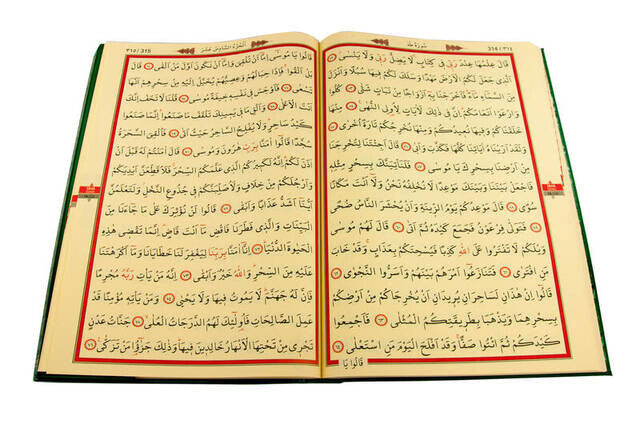 ٣١٤/314
سُورَةُ طٰهٰ
قَالَ عِلْمُهَا عِنْدَ رَبِّي فِي كِتَابٍ لَا يَضِلُّ رَبِّي وَلَا يَنْسٰى ٥٢
اَلَّذِي جَعَلَ لَكُمُ الْاَرْضَ مَهْدًا وَسَلَكَ لَكُمْ فِيهَا سُبُلًا وَاَنْزَلَ
مِنَ السَّمَاءِ مَاءً فَاَخْرَجْنَا بِهِ اَزْوَاجًا مِنْ نَبَاتٍ شَتّٰى ٥٣ كُلُوا
وَارْعَوْا اَنْعَامَكُمْ اِنَّ فِي ذٰلِكَ لَاٰيَاتٍ لِاُولِي النُّهٰى ٥٤ مِنْهَا
خَلَقْنَاكُمْ وَفِيهَا نُعِيدُكُمْ وَمِنْهَا نُخْرِجُكُمْ تَارَةً اُخْرٰى ٥٥
وَلَقَدْ اَرَيْنَاهُ اٰيَاتِنَا كُلَّهَا فَكَذَّبَ وَاَبٰى ٥٦ قَالَ اَجِئْتَنَا لِتُخْرِجَنَا
مِنْ اَرْضِنَا بِسِحْرِكَ يَا مُوسٰى ٥٧ فَلَنَأْتِيَنَّكَ بِسِحْرٍ مِثْلِهِ
فَاجْعَلْ بَيْنَنَا وَبَيْنَكَ مَوْعِدًا لَا نُخْلِفُهُ نَحْنُ وَلَا اَنْتَ مَكَانًا
سُوًى ٥٨ قَالَ مَوْعِدُكُمْ يَوْمُ الزِّينَةِ وَاَنْ يُحْشَرَ النَّاسُ ضُحًى
٥٩ فَتَوَلّٰى فِرْعَوْنُ فَجَمَعَ كَيْدَهُ ثُمَّ اَتٰى ٦٠ قَالَ لَهُمْ مُوسٰى
وَيْلَكُمْ لَا تَفْتَرُوا عَلَى اللّٰهِ كَذِبًا فَيُسْحِتَكُمْ بِعَذَابٍ وَقَدْ خَابَ
مَنِ افْتَرٰى ٦١ فَتَنَازَعُوا اَمْرَهُمْ بَيْنَهُمْ وَاَسَرُّوا النَّجْوٰى ٦٢
قَالُوا اِنْ هٰذَانِ لَسَاحِرَانِ يُرِيدَانِ اَنْ يُخْرِجَاكُمْ مِنْ اَرْضِكُمْ
بِسِحْرِهِمَا وَيَذْهَبَا بِطَرِيقَتِكُمُ الْمُثْلٰى ٦٣ فَاَجْمِعُوا
كَيْدَكُمْ ثُمَّ ائْتُوا صَفًّا وَقَدْ اَفْلَحَ الْيَوْمَ مَنِ اسْتَعْلٰى ٦٤
قَالُوا يَا
اَلْجُزْءُ السَّادِسَ عَشَرَ
٣١٥/315
قَالُوا يَا مُوسٰى اِمَّا اَنْ تُلْقِيَ وَاِمَّا اَنْ نَكُونَ اَوَّلَ مَنْ اَلْقٰى ٦٥ قَالَ
بَلْ اَلْقُوا فَاِذَا حِبَالُهُمْ وَعِصِيُّهُمْ يُخَيَّلُ اِلَيْهِ مِنْ سِحْرِهِمْ اَنَّهَا
تَسْعٰى ٦٦ فَاَوْجَسَ فِي نَفْسِهِ خِيفَةً مُوسٰى ٦٧ قُلْنَا لَا تَخَفْ اِنَّكَ
اَنْتَ الْاَعْلٰى ٦٨ وَاَلْقِ مَا فِي يَمِينِكَ تَلْقَفْ مَا صَنَعُوا اِنَّمَا صَنَعُوا
كَيْدُ سَاحِرٍ وَلَا يُفْلِحُ السَّاحِرُ حَيْثُ اَتٰى ٦٩ فَاُلْقِيَ السَّحَرَةُ
سُجَّدًا قَالُوا اٰمَنَّا بِرَبِّ هٰرُونَ وَمُوسٰى ٧٠ قَالَ اٰمَنْتُمْ لَهُ قَبْلَ اَنْ
اٰذَنَ لَكُمْ اِنَّهُ لَكَبِيرُكُمُ الَّذِي عَلَّمَكُمُ السِّحْرَ فَلَاُقَطِّعَنَّ اَيْدِيَكُمْ
وَاَرْجُلَكُمْ مِنْ خِلَافٍ وَلَاُصَلِّبَنَّكُمْ فِي جُذُوعِ النَّخْلِ وَلَتَعْلَمُنَّ
اَيُّنَا اَشَدُّ عَذَابًا وَاَبْقٰى ٧١ قَالُوا لَنْ نُؤْثِرَكَ عَلٰى مَا جَاءَنَا مِنَ
الْبَيِّنَاتِ وَالَّذِي فَطَرَنَا فَاقْضِ مَا اَنْتَ قَاضٍ اِنَّمَا تَقْضِي هٰذِهِ
الْحَيٰوةَ الدُّنْيَا ٧٢ اِنَّا اٰمَنَّا بِرَبِّنَا لِيَغْفِرَ لَنَا خَطَايَانَا وَمَا اَكْرَهْتَنَا
عَلَيْهِ مِنَ السِّحْرِ وَاللّٰهُ خَيْرٌ وَاَبْقٰى ٧٣ اِنَّهُ مَنْ يَأْتِ رَبَّهُ مُجْرِمًا
فَاِنَّ لَهُ جَهَنَّمَ لَا يَمُوتُ فِيهَا وَلَا يَحْيٰى ٧٤ وَمَنْ يَأْتِهِ مُؤْمِنًا قَدْ
عَمِلَ الصَّالِحَاتِ فَاُولٰئِكَ لَهُمُ الدَّرَجَاتُ الْعُلٰى ٧٥ جَنَّاتُ عَدْنٍ
تَجْرِي مِنْ تَحْتِهَا الْاَنْهَارُ خَالِدِينَ فِيهَا وَذٰلِكَ جَزٰٓؤُا مَنْ تَزَكّٰى ٧٦